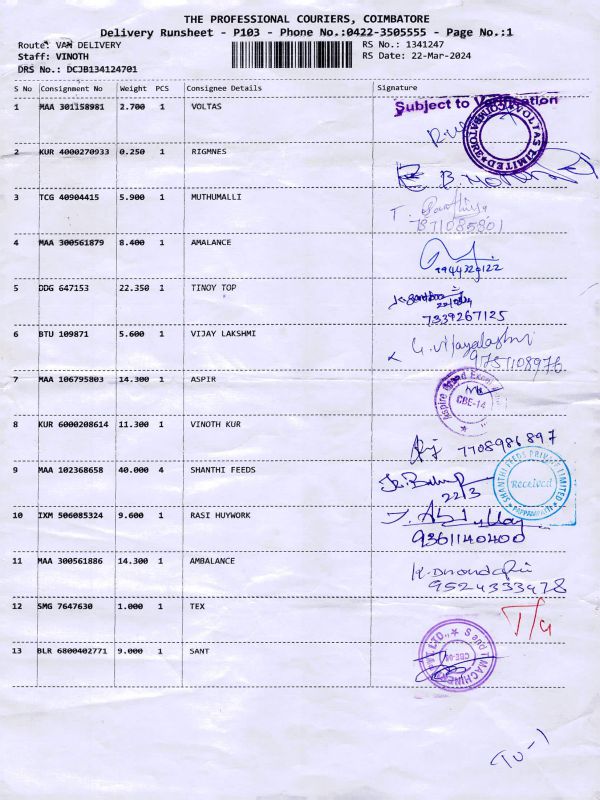 THE PROFESSIONAL COURIERS, COIMBATORE
Delivery Runsheet - P103 - Phone No.:0422-3505555 - Page No.:1
Route: VAN DELIVERY RS No.: 1341247
Staff: VINOTH RS Date: 22-Mar-2024
DRS No.: DCJB134124701
S No Consignment No Weight PCS Consignee Details Signature
1 MAA 301158981 2.700 1 VOLTAS Subject to Verification
VOLTAS LIMITED COIMBATORE
2 KUR 4000270933 0.250 1 RIGMNES
3 TCG 40904415 5.900 1 MUTHUMALLI
7871085801
4 MAA 300561879 8.400 1 AMALANCE
5 DDG 647153 22.350 1 TINOY TOP
7339267125
6 BTU 109871 5.600 1 VIJAY LAKSHMI G. Vijayalashmi
9751108976.
7 MAA 106795803 14.300 1 ASPIR
CBE-14
8 KUR 6000208614 11.300 1 VINOTH KUR
7708986897
9 MAA 102368658 40.000 4 SHANTHI FEEDS
22/3
SHANTHI FEEDS PRIVATE LIMITED
Received
PAPPAMPATTI
10 IXM 506085324 9.600 1 RASI HUYWORK
9361140400
11 MAA 300561886 14.300 1 AMBALANCE
9524333478
12 SMG 7647630 1.000 1 TEX
13 BLR 6800402771 9.000 1 SANT